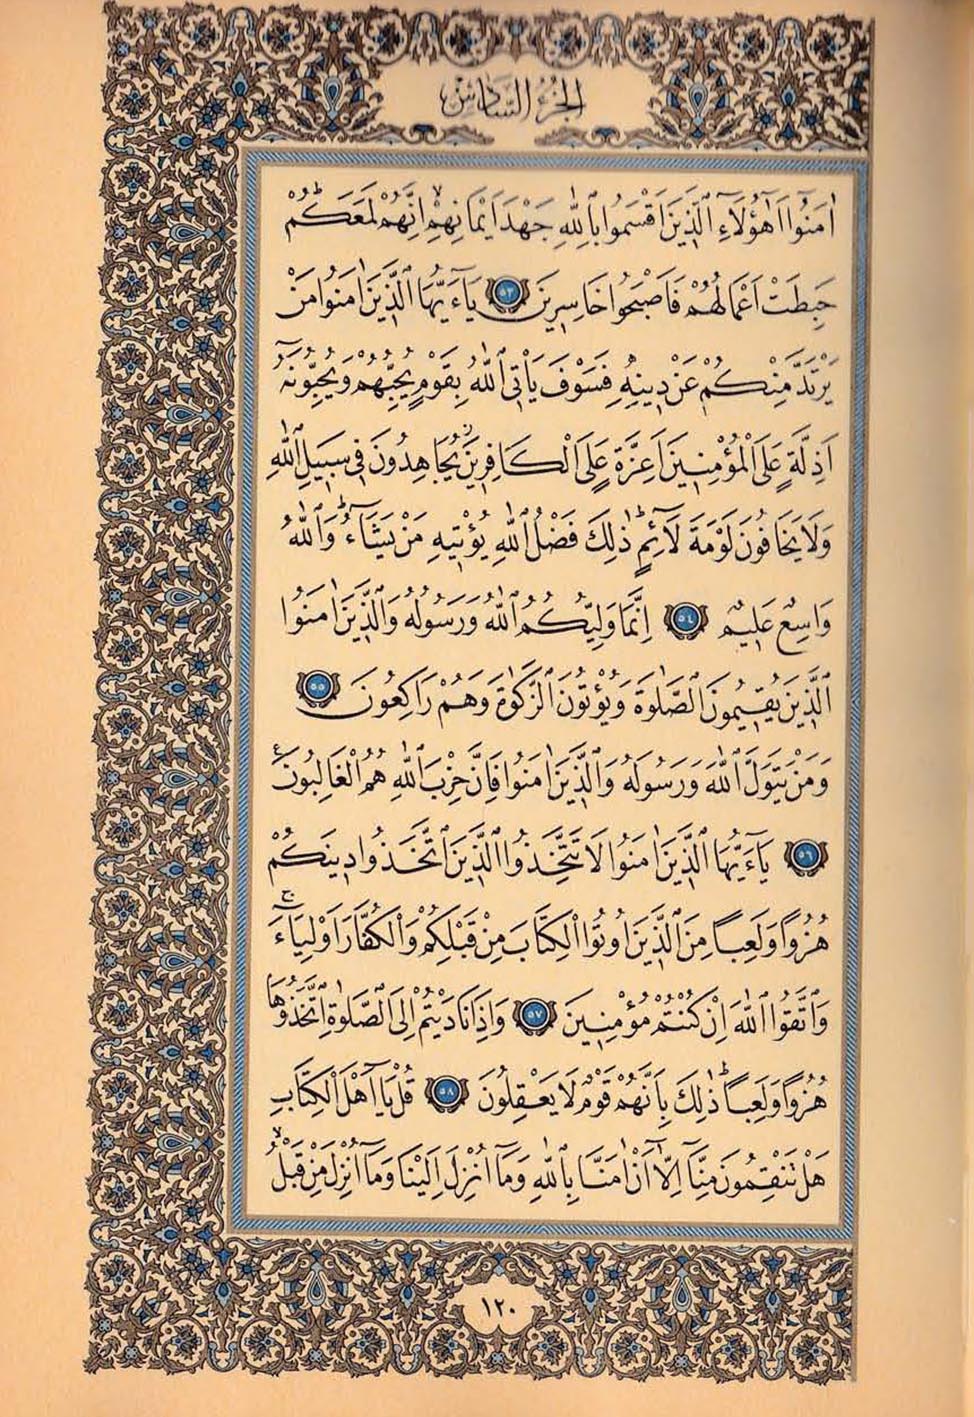 الجزء السادس
اٰمَنُٓوا اَهٰٓؤُ۬لَٓاءِ الَّذ۪ينَ اَقْسَمُوا بِاللّٰهِ جَهْدَ اَيْمَانِهِمْۙ اِنَّهُمْ لَمَعَكُمْۜ
حَبِطَتْ اَعْمَالُهُمْ فَاَصْبَحُوا خَاسِر۪ينَ ﴿٥٣﴾ يَٓا اَيُّهَا الَّذ۪ينَ اٰمَنُوا مَنْ
يَرْتَدَّ مِنْكُمْ عَنْ د۪ينِه۪ فَسَوْفَ يَأْتِي اللّٰهُ بِقَوْمٍ يُحِبُّهُمْ وَيُحِبُّونَهُٓ
اَذِلَّةٍ عَلَى الْمُؤْمِن۪ينَ اَعِزَّةٍ عَلَى الْكَافِر۪ينَۘ يُجَاهِدُونَ ف۪ي سَب۪يلِ اللّٰهِ
وَلَا يَخَافُونَ لَوْمَةَ لَٓائِمٍۜ ذٰلِكَ فَضْلُ اللّٰهِ يُؤْت۪يهِ مَنْ يَشَٓاءُۜ وَاللّٰهُ
وَاسِعٌ عَل۪يمٌ ﴿٥٤﴾ اِنَّمَا وَلِيُّكُمُ اللّٰهُ وَرَسُولُهُ وَالَّذ۪ينَ اٰمَنُوا
الَّذ۪ينَ يُق۪يمُونَ الصَّلٰوةَ وَيُؤْتُونَ الزَّكٰوةَ وَهُمْ رَاكِعُونَ ﴿٥٥﴾
وَمَنْ يَتَوَلَّ اللّٰهَ وَرَسُولَهُ وَالَّذ۪ينَ اٰمَنُوا فَاِنَّ حِزْبَ اللّٰهِ هُمُ الْغَالِبُونَ۟
﴿٥٦﴾ يَٓا اَيُّهَا الَّذ۪ينَ اٰمَنُوا لَا تَتَّخِذُوا الَّذ۪ينَ اتَّخَذُوا د۪ينَكُمْ
هُزُوًا وَلَعِبًا مِنَ الَّذ۪ينَ اُو۫تُوا الْكِتَابَ مِنْ قَبْلِكُمْ وَالْكُفَّارَ اَوْلِيَٓاءَۚ
وَاتَّقُوا اللّٰهَ اِنْ كُنْتُمْ مُؤْمِن۪ينَ ﴿٥٧﴾ وَاِذَا نَادَيْتُمْ اِلَى الصَّلٰوةِ اتَّخَذُوهَا
هُزُوًا وَلَعِبًاۜ ذٰلِكَ بِاَنَّهُمْ قَوْمٌ لَا يَعْقِلُونَ ﴿٥٨﴾ قُلْ يَٓا اَهْلَ الْكِتَابِ
هَلْ تَنْقِمُونَ مِنَّٓا اِلَّٓا اَنْ اٰمَنَّا بِاللّٰهِ وَمَٓا اُنْزِلَ اِلَيْنَا وَمَٓا اُنْزِلَ مِنْ قَبْلُۙ
١٢٠